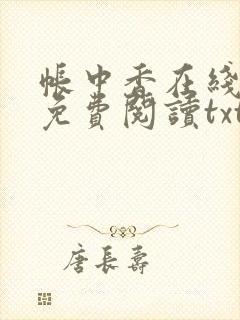 帳中香在綫
免費閱讀txt
唐長壽